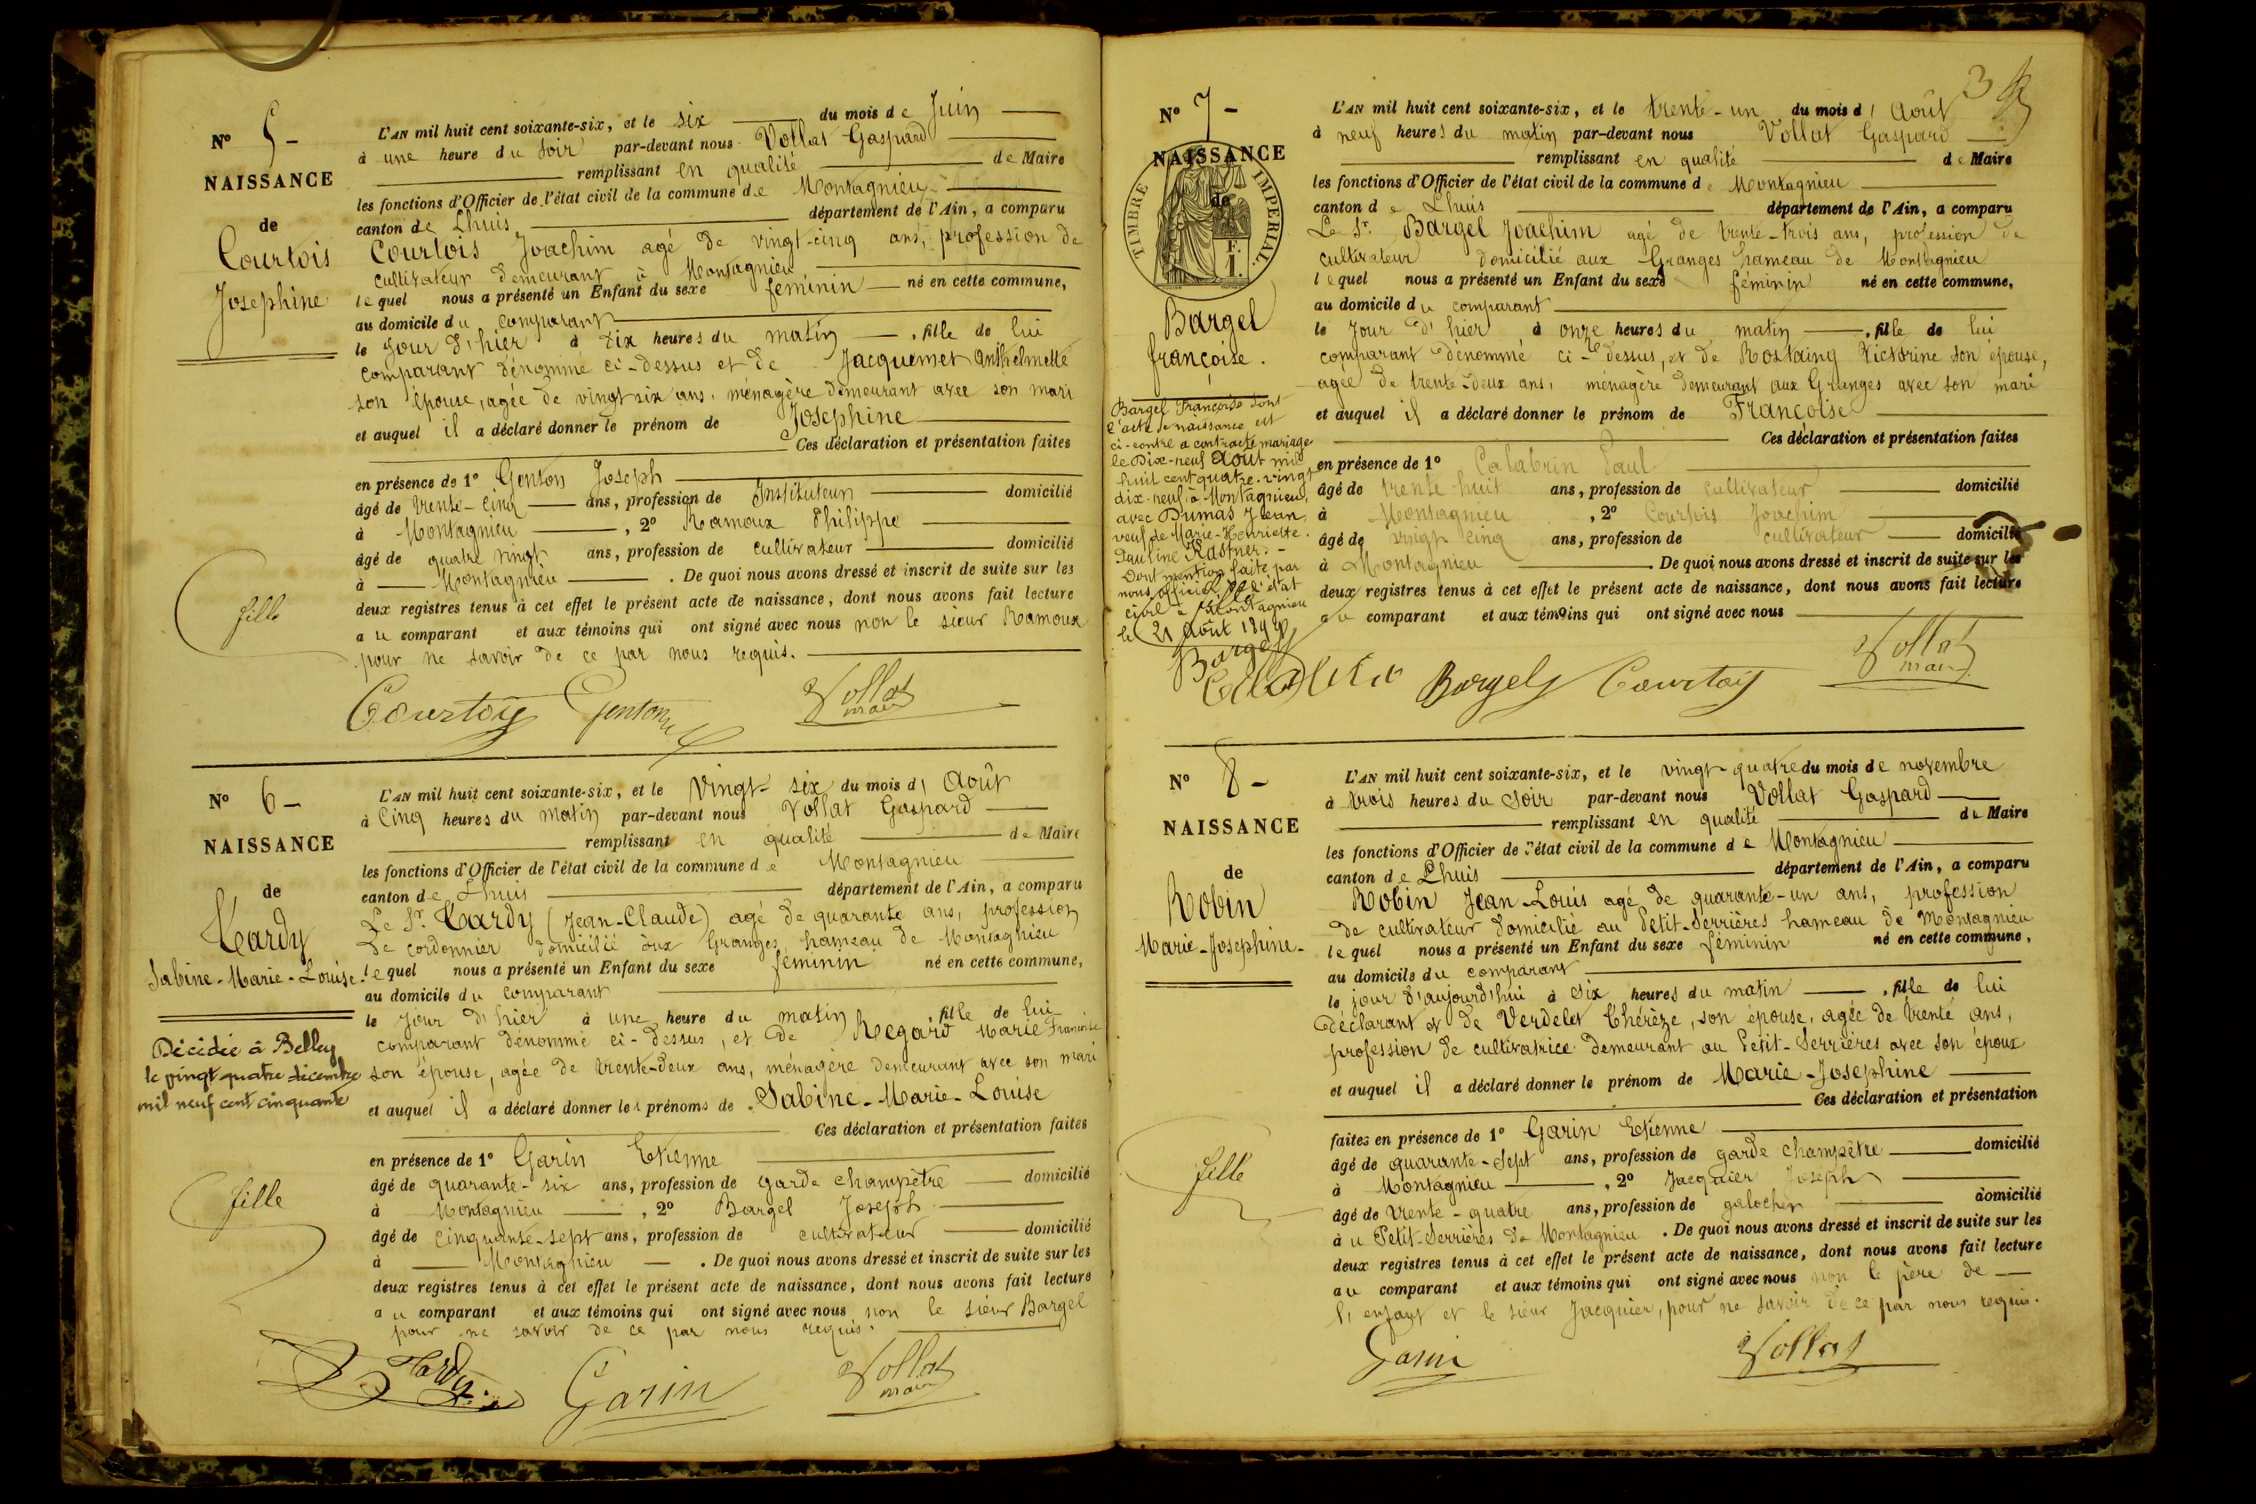 N° 5 -
NAISSANCE
de
Courtois
Josephine
fille
L'AN mil huit cent soixante-six, et le six du mois de Juin
à une heure du soir par-devant nous Vollat Gaspard
remplissant en qualité de Maire
les fonctions d'Officier de l'état civil de la commune de Montagnieu
canton de Lhuis département de l'Ain, a comparu
Courtois Joachim agé de vingt-cinq ans, profession de
cultivateur demeurant à Montagnieu
lequel nous a présenté un Enfant du sexe féminin né en cette commune,
au domicile du comparant
le jour d'hier à dix heures du matin, fille de lui
comparant dénommé ci-dessus et de Jacquemet Anthelmette
son épouse, agée de vingt six ans, ménagère demeurant avec son mari
et auquel il a déclaré donner le prénom de Josephine
Ces déclaration et présentation faites
en présence de 1° Genton Joseph
âgé de trente-cinq ans, profession de Instituteur domicilié
à Montagnieu, 2° Ramoux Philippe
âgé de quatre vingt ans, profession de cultivateur domicilié
à Montagnieu. De quoi nous avons dressé et inscrit de suite sur les
deux registres tenus à cet effet le présent acte de naissance, dont nous avons fait lecture
au comparant et aux témoins qui ont signé avec nous non le sieur Ramoux
pour ne savoir de ce par nous requis.
Courtois Genton Vollat
maire
N° 6 -
NAISSANCE
de
Hardy
Sabine-Marie-Louise
Décédée à Belley
le vingt quatre décembre
mil neuf cent cinquante
fille
L'AN mil huit cent soixante-six, et le Vingt-six du mois d'Août
à Cinq heures du matin par-devant nous Vollat Gaspard
remplissant en qualité de Maire
les fonctions d'Officier de l'état civil de la commune de Montagnieu
canton de Lhuis département de l'Ain, a comparu
Le Sr. Hardy (Jean-Claude) agé de quarante ans, profession
de cordonnier domicilié aux Granges, hameau de Montagnieu
lequel nous a présenté un Enfant du sexe féminin né en cette commune,
au domicile du comparant
le jour d'hier à une heure du matin, fille de lui
comparant dénommé ci-dessus, et de Regard Marie Francoise
son épouse, agée de trente-deux ans, ménagère demeurant avec son mari
et auquel il a déclaré donner les prénoms de Sabine-Marie-Louise
Ces déclaration et présentation faites
en présence de 1° Garin Etienne
âgé de quarante-six ans, profession de garde champêtre domicilié
à Montagnieu, 2° Bargel Joseph
âgé de cinquante-sept ans, profession de cultivateur domicilié
à Montagnieu. De quoi nous avons dressé et inscrit de suite sur les
deux registres tenus à cet effet le présent acte de naissance, dont nous avons fait lecture
au comparant et aux témoins qui ont signé avec nous non le sieur Bargel
pour ne savoir de ce par nous requis.
Hardy Garin Vollat
maire
3
N° 7 -
NAISSANCE
de
TIMBRE IMPÉRIAL
F.
1.
Bargel
françoise.
Bargel Françoise dont
l'acte de naissance est
ci-contre a contracté mariage
le Dix-neuf Août mil
huit cent quatre-vingt
dix-neuf à Montagnieu,
avec Dumas Jean,
veuf de Marie-Henriette
Pauline Kastner. -
Dont mention faite par
nous officier de l'état
civil à Montagnieu
le 21 Août 1899
Bargel
L'AN mil huit cent soixante-six, et le trente-un du mois d'Août
à neuf heures du matin par-devant nous Vollat Gaspard
remplissant en qualité de Maire
les fonctions d'Officier de l'état civil de la commune de Montagnieu
canton de Lhuis département de l'Ain, a comparu
Le Sr. Bargel Joachim agé de trente-trois ans, profession de
cultivateur domicilié aux Granges hameau de Montagnieu
lequel nous a présenté un Enfant du sexe féminin né en cette commune,
au domicile du comparant
le jour d'hier à onze heures du matin, fille de lui
comparant dénommé ci-dessus, et de Rostaing Victorine son épouse,
agée de trente-deux ans, ménagère demeurant aux Granges avec son mari
et auquel il a déclaré donner le prénom de Françoise
Ces déclaration et présentation faites
en présence de 1° Calabrin Paul
âgé de trente huit ans, profession de cultivateur domicilié
à Montagnieu, 2° Courtois Joachim
âgé de vingt cinq ans, profession de cultivateur domicilié
à Montagnieu. De quoi nous avons dressé et inscrit de suite sur les
deux registres tenus à cet effet le présent acte de naissance, dont nous avons fait lecture
au comparant et aux témoins qui ont signé avec nous
Bargel Courtois Vollat
maire
N° 8 -
NAISSANCE
de
Robin
Marie-Josephine-
fille
L'AN mil huit cent soixante-six, et le vingt quatre du mois de novembre
à trois heures du soir par-devant nous Vollat Gaspard
remplissant en qualité de Maire
les fonctions d'Officier de l'état civil de la commune de Montagnieu
canton de Lhuis département de l'Ain, a comparu
Robin Jean-Louis agé de quarante-un ans, profession
de cultivateur domicilié au Petit-Serrières hameau de Montagnieu
lequel nous a présenté un Enfant du sexe féminin né en cette commune,
au domicile du comparant
le jour d'aujourd'hui à six heures du matin, fille de lui
déclarant et de Verdelet Thérèze, son épouse, agée de trente ans,
profession de cultivatrice demeurant au Petit-Serrières avec son époux
et auquel il a déclaré donner le prénom de Marie-Josephine
Ces déclaration et présentation
faites en présence de 1° Garin Etienne
âgé de quarante-sept ans, profession de garde champêtre domicilié
à Montagnieu, 2° Jacquier Joseph
âgé de trente-quatre ans, profession de galocher domicilié
au Petit-Serrières de Montagnieu. De quoi nous avons dressé et inscrit de suite sur les
deux registres tenus à cet effet le présent acte de naissance, dont nous avons fait lecture
au comparant et aux témoins qui ont signé avec nous non le père de
l'enfant et le sieur Jacquier, pour ne savoir de ce par nous requis.
Garin Vollat